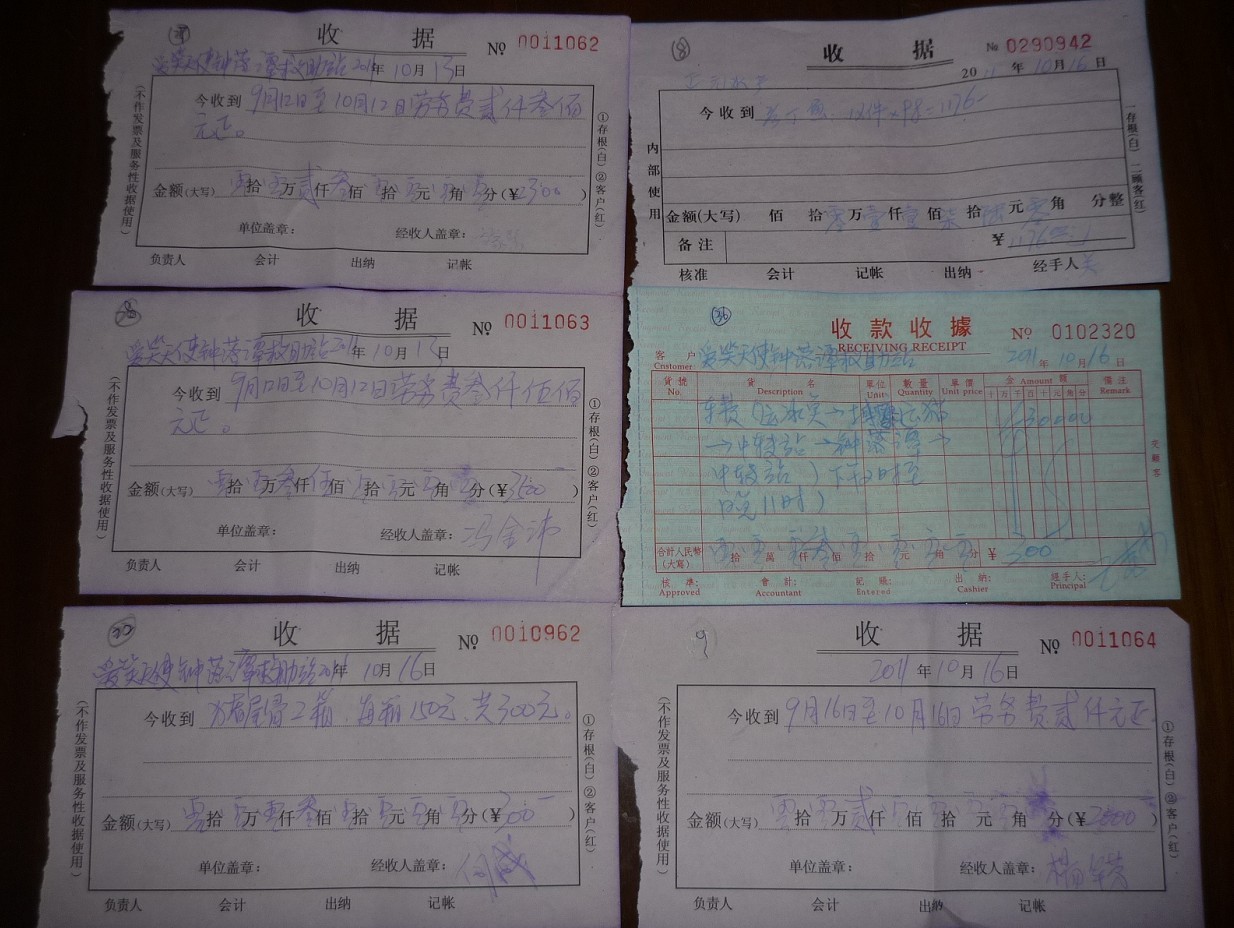 收 据 № 0011062
爱笑天使钟落潭救助站2011年10月13日
今收到 9月12日至10月12日劳务费贰仟叁佰
元正。
金额(大写) 零拾零万贰仟叁佰零拾零元零角零分(¥2300)
单位盖章: 经收人盖章:
负责人 会计 出纳 记帐
(不作发票及服务性收据使用)
①存根(白)②客户(红)
⑧
收 据 № 0290942
2011年10月16日
今收到 12件×98=1176-
内部使用
金额(大写) 佰 拾零万壹仟壹佰柒拾陆元零角 分整
备注 ¥1176.00
核准 会计 记帐 出纳 经手人
一存根(白) 二顾客(红)
收 据 № 0011063
爱笑天使钟落潭救助站2011年10月13日
今收到 9月12日至10月12日劳务费叁仟伍佰
元正。
金额(大写) 零拾零万叁仟伍佰零拾零元零角零分(¥3500)
单位盖章: 经收人盖章:冯金沛
负责人 会计 出纳 记帐
(不作发票及服务性收据使用)
①存根(白)②客户(红)
㊱
收款收據 № 0102320
RECEIVING RECEIPT
客户 Cnstomer 爱笑天使钟落潭救助站 2011年10月16日
貨號 No. 貨名 Description 單位 Unit 數量 Quantity 單價 Unit price 金 Amount 額 備注 Remark
十万千百十元角分
车费(
→中转站→钟落潭→ 30000
中转站)下午2时至
晚11时)
合計人民幣(大寫) 零拾零萬零仟叁佰零拾零元零角零分 ¥300
核準: Approved 會計: Accountant 記賬: Entered 出納: Cashier 經手人: Principal
交顧客
收 据 № 0010962
爱笑天使钟落潭救助站2011年10月16日
今收到 2箱,每箱150元,共300元。
金额(大写) 零拾零万零仟叁佰零拾零元零角零分(¥300)
单位盖章: 经收人盖章:何威
负责人 会计 出纳 记帐
(不作发票及服务性收据使用)
①存根(白)②客户(红)
9
收 据 № 0011064
2011年10月16日
今收到 9月16日至10月16日劳务费贰仟元正.
金额(大写) 零拾零万贰仟零佰零拾零元零角 分(¥2000)
单位盖章: 经收人盖章:
负责人 会计 出纳 记帐
(不作发票及服务性收据使用)
①存根(白)②客户(红)